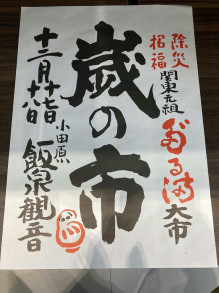 除災
招福
関東元祖
だるま大市
歳の市
十二月十七日
十八日
小田原
飯泉観音